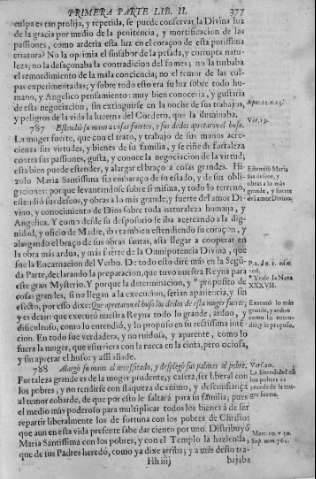 PRIMERA PARTE LIB. II. 377
culpa es tan prolija, y repetida, se puede conservar la Divina luz
de la gracia por medio de la penitencia, y mortificacion de las
passiones, como arderia esta luz en el coraçon de esta purissima
criatura? No la oprimia el sinsabor de la pesada, y corrupta natura-
leza; no la desaçonaba la contradicion del fomes; no la turbaba
el remordimiento de la mala conciencia; no el temor de las cul-
pas experimentadas; y sobre todo esto era su luz sobre todo hu-
mano, y Angelico pensamiento: muy bien conocerìa, y gustaria
de esta negociacion, sin extinguirse en la noche de sus trabajos,
y peligros de la vida la lucerna del Cordero, que la iluminaba.
787 Estendiò su mano a cosas fuertes, y sus dedos apretaron el huso.
La muger fuerte, que con el trato, y trabajo de sus manos acre-
cienta sus virtudes, y bienes de su familia, y se ciñe de fortaleza
contra sus passiones, gusta, y conoce la negociacion de la virtud,
esta bien puede estender, y alargar el braço a cosas grandes. Hi-
zolo Maria Santissima sin embaraço de su estado, y de sus obli-
gaciones: porque levantandose sobre si misma, y todo lo terreno,
estendiò sus deseos, y obras a lo mas grande, y fuerte del amor Di-
vino, y conocimiento de Dios sobre toda naturaleza humana, y
Angelica. Y como desde su desposorio se iba acercando a la dig-
nidad, y oficio de Madre, iba tambien estendiendo su coraçon, y
alargando el braço de sus obras santas, asta llegar a cooperar en
la obra mas ardua, y mas fuerte de la Omnipotencia Divina, que
fue la Encarnacion del Verbo. De todo esto dirè mas en la Segun-
da Parte, declarando la preparacion, que tuvo nuestra Reyna para
este gran Mysterio. Y porque la determinacion, y * proposito de
cosas grandes, si no llegan a la execucion, serian apariencia, y sin
efecto, por esso dize: Que apretaron el huso los dedos de esta muger fuerte;
y es dezir: que executò nuestra Reyna todo lo grande, arduo, y
dificultoso, como lo entendiò, y lo propuso en su rectissima inten-
cion. En todo fue verdadera, y no ruidosa, y aparente, como lo
fuera la muger, que estuviera con la rueca en la cinta, pero ociosa,
y sin apretar el huso: y assi añade.
788 Alargò su mano al necessitado, y desplegò sus palmas al pobre.
Fortaleza grande es de la muger prudente, y casera, ser liberal con
los pobres, y no rendirse con flaqueza de animo, y desconfiança
al temor cobarde, de que por esto le faltarà para su familia; pues
el medio mas poderoso para multiplicar todos los bienes ha de ser
repartir liberalmente los de fortuna con los pobres de Christo;
que aun en esta vida presente sabe dar ciento por uno. Distribuyò
Maria Santissima con los pobres, y con el Templo la hazienda,
que de sus Padres heredò, como ya dixe arriba; y a mas desto tra-
bajaba
Ver. 19.
P. 2.
XXXVII.
Ver. 20.